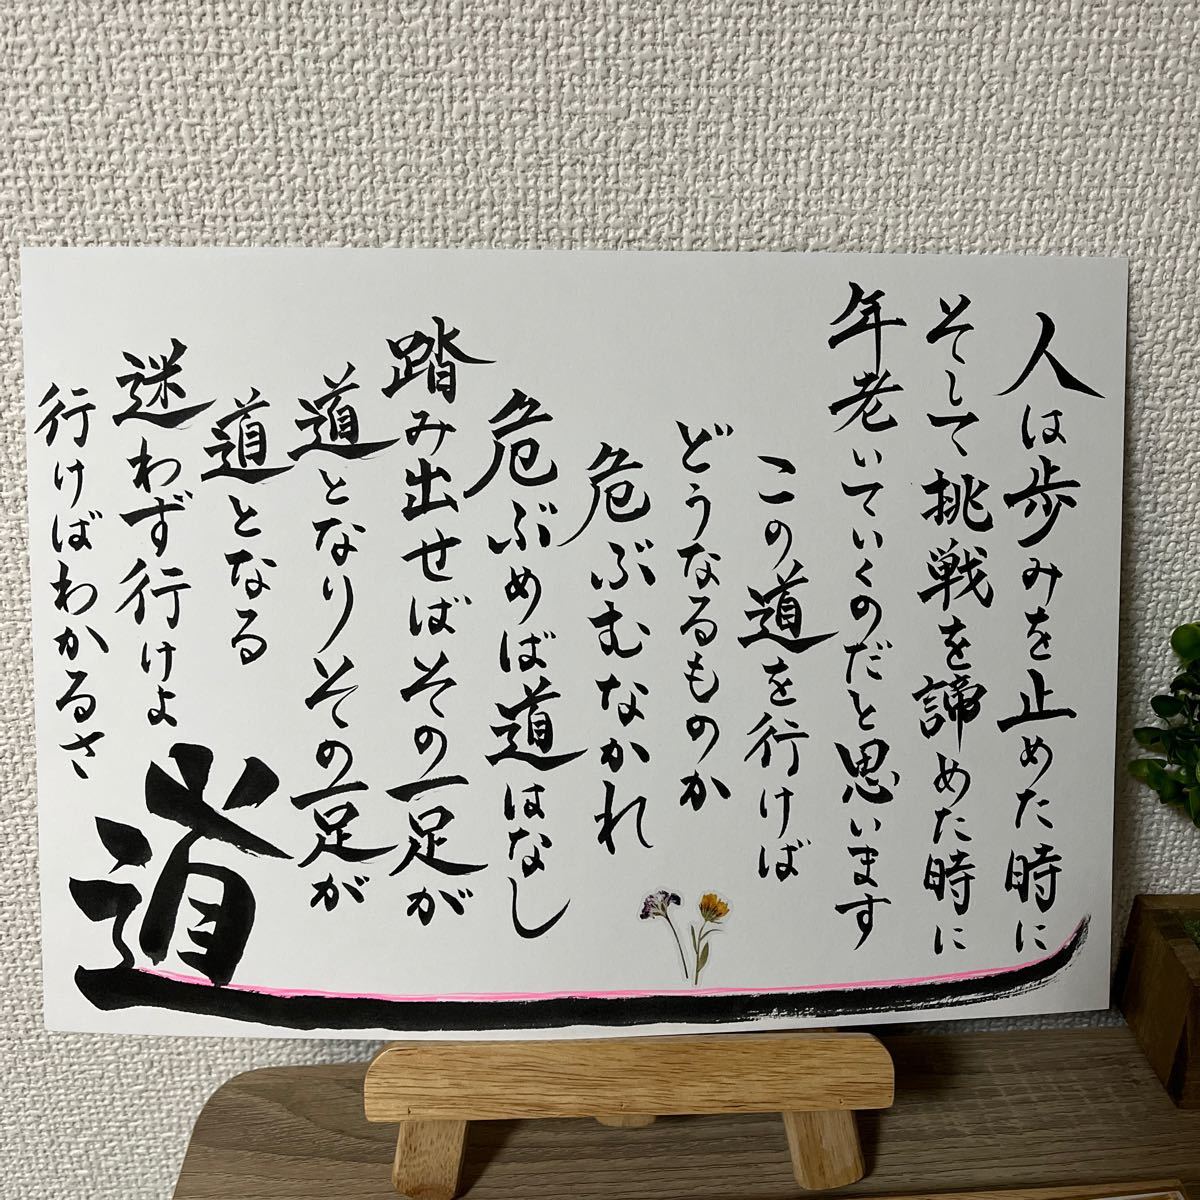 人は歩みを止めた時に
そして挑戦を諦めた時に
年老いていくのだと思います
この道を行けば
どうなるものか
危ぶむなかれ
危ぶめば道はなし
踏み出せばその一足が
道となりその一足が
道となる
迷わず行けよ
行けばわかるさ
道